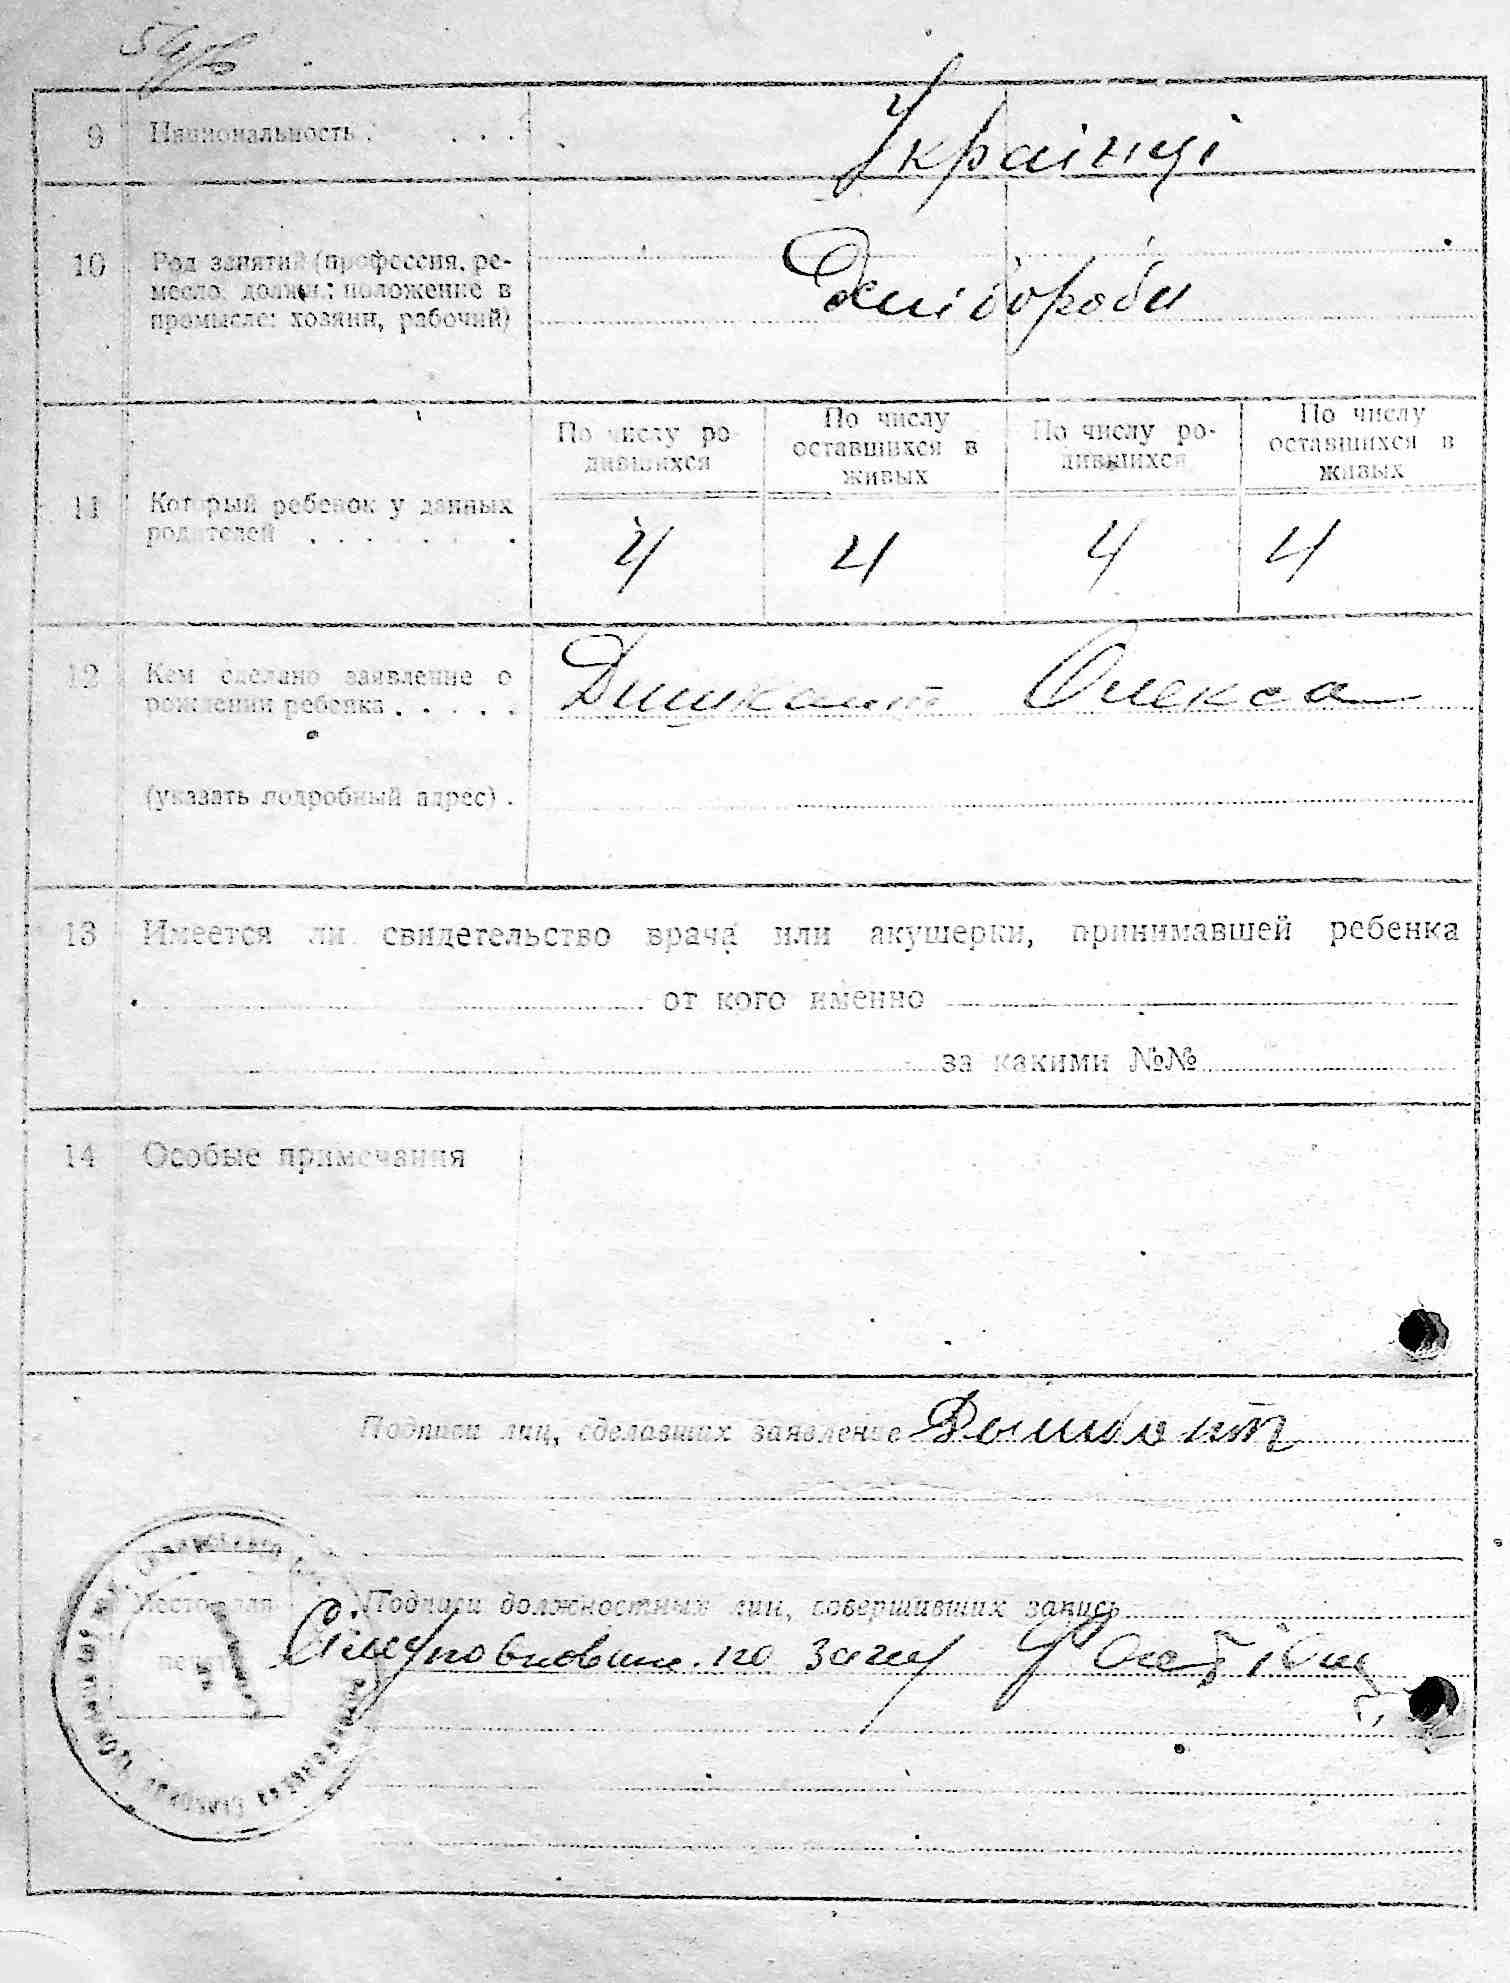 54/в
9 Национальность . . . . Українці
10 Род занятий (профессия, ре-
месло, должн.; положение в
промысле: хозяин, рабочий)
Хлібороби
По числу ро-
дившихся
По числу
оставшихся в
живых
По числу ро-
дившихся
По числу
оставшихся в
живых
11 Который ребенок у данных
родителей . . . . . . .
4 4 4 4
12 Кем сделано заявление о
рождении ребенка . . . . .
Дишкант Олекса
(указать подробный адрес) .
13 Имеется ли свидетельство врача или акушерки, принимавшей ребенка
от кого именно
за какими №№
14 Особые примечания
Подписи лиц, сделавших заявление Дышкант
Место для
печати
Подписи должностных лиц, совершивших запись
по загсу